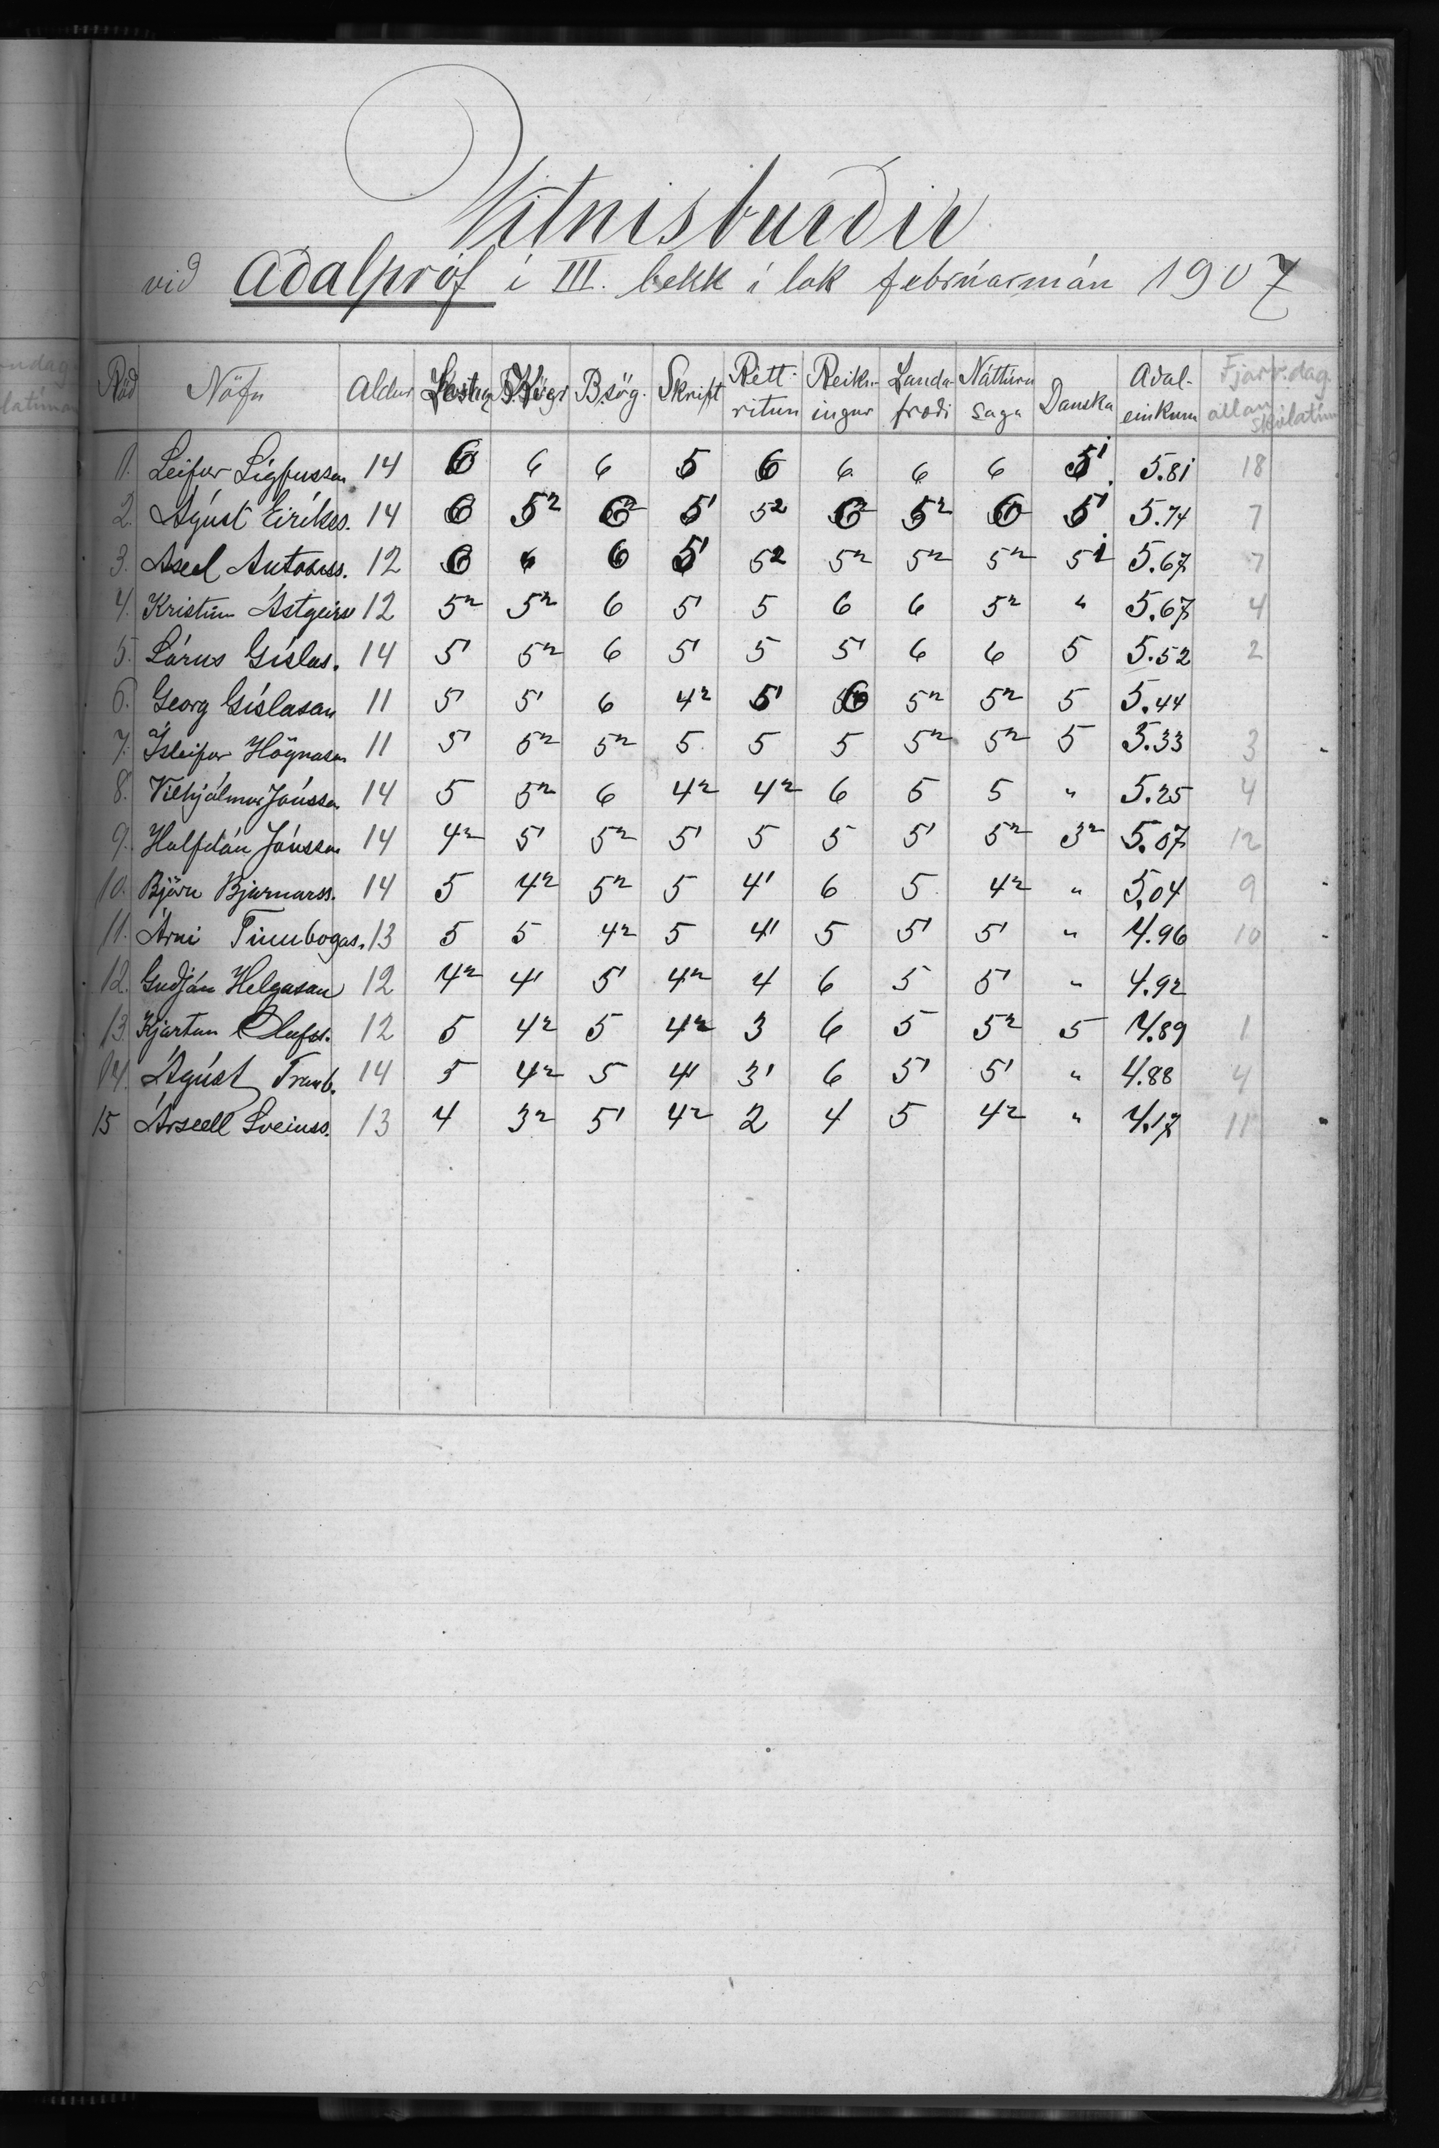 Vitnisburðir
við Aðalpróf í III. bekk í lok febrúarmán 1907
Röð Nöfn Aldur Lestur B.sög. Skrift Rétt-ritun Reikn-ingur Landa-fræði Náttúru saga Danska Aðal-einkunn Fjarv.dag. allan skólatím
1. Leifur Sigfússon 14 6 6 6 5 6 6 6 6 5' 5.81 18
2. Ágúst Eiríkss. 14 6 5² 6 5' 5² 6 5² 6 5' 5.74 7
3. Axel Antonss. 12 6 6 6 5' 5² 5² 5² 5² 5' 5.67 7
4. Kristinn Ástgeirss 12 5² 5² 6 5' 5 6 6 5² " 5.67 4
5. Lárus Gíslas. 14 5' 5² 6 5' 5 5' 6 6 5 5.52 2
6. Georg Gíslason 11 5' 5' 6 4² 5' 6 5² 5² 5 5.44
7. Ísleifur Högnason 11 5' 5² 5² 5 5 5 5² 5² 5 5.33 3
8. Vilhjálmur Jónsson 14 5 5² 6 4² 4² 6 5 5 " 5.25 4
9. Halfdán Jónsson 14 4² 5' 5² 5' 5 5 5' 5² 3² 5.07 12
10. Björn Bjarnarss. 14 5 4² 5² 5 4' 6 5 4² " 5.04 9
11. Árni Finnbogas. 13 5 5 4² 5 4' 5 5' 5' " 4.96 10
12. Guðjón Helgason 12 4² 4' 5' 4² 4 6 5 5' " 4.92
13. Kjartan Ólafss. 12 5 4² 5 4² 3 6 5 5² 5 4.89 1
14. Ágúst 14 5 4² 5 4' 3' 6 5' 5' " 4.88 4
15 Ársæll Sveinss. 13 4 3² 5' 4² 2 4 5 4² " 4.17 11